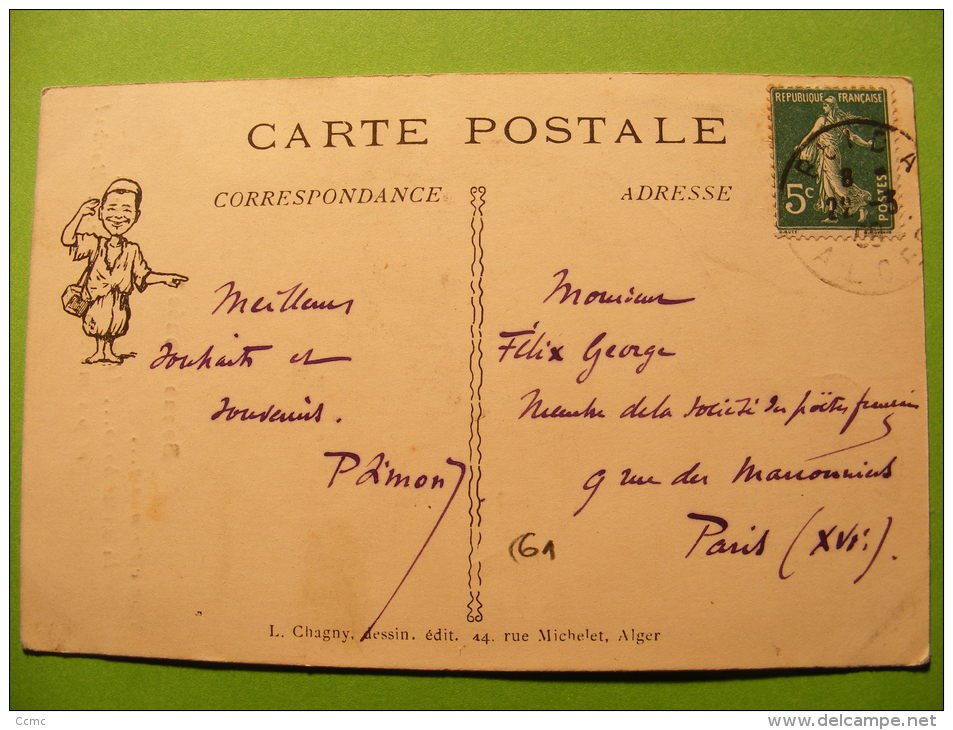 CARTE POSTALE
CORRESPONDANCE
ADRESSE
REPUBLIQUE FRANÇAISE
5c
POSTES
8
22 -3
Meilleurs
souhaits et
souvenirs.
P Limon
Monsieur
Félix George
Membre de la Société des poëtes français
9 rue des Marronniers
Paris (XVIe).
61
L. Chagny, dessin. édit. 44, rue Michelet, Alger
Ccmc
www.delcampe.net